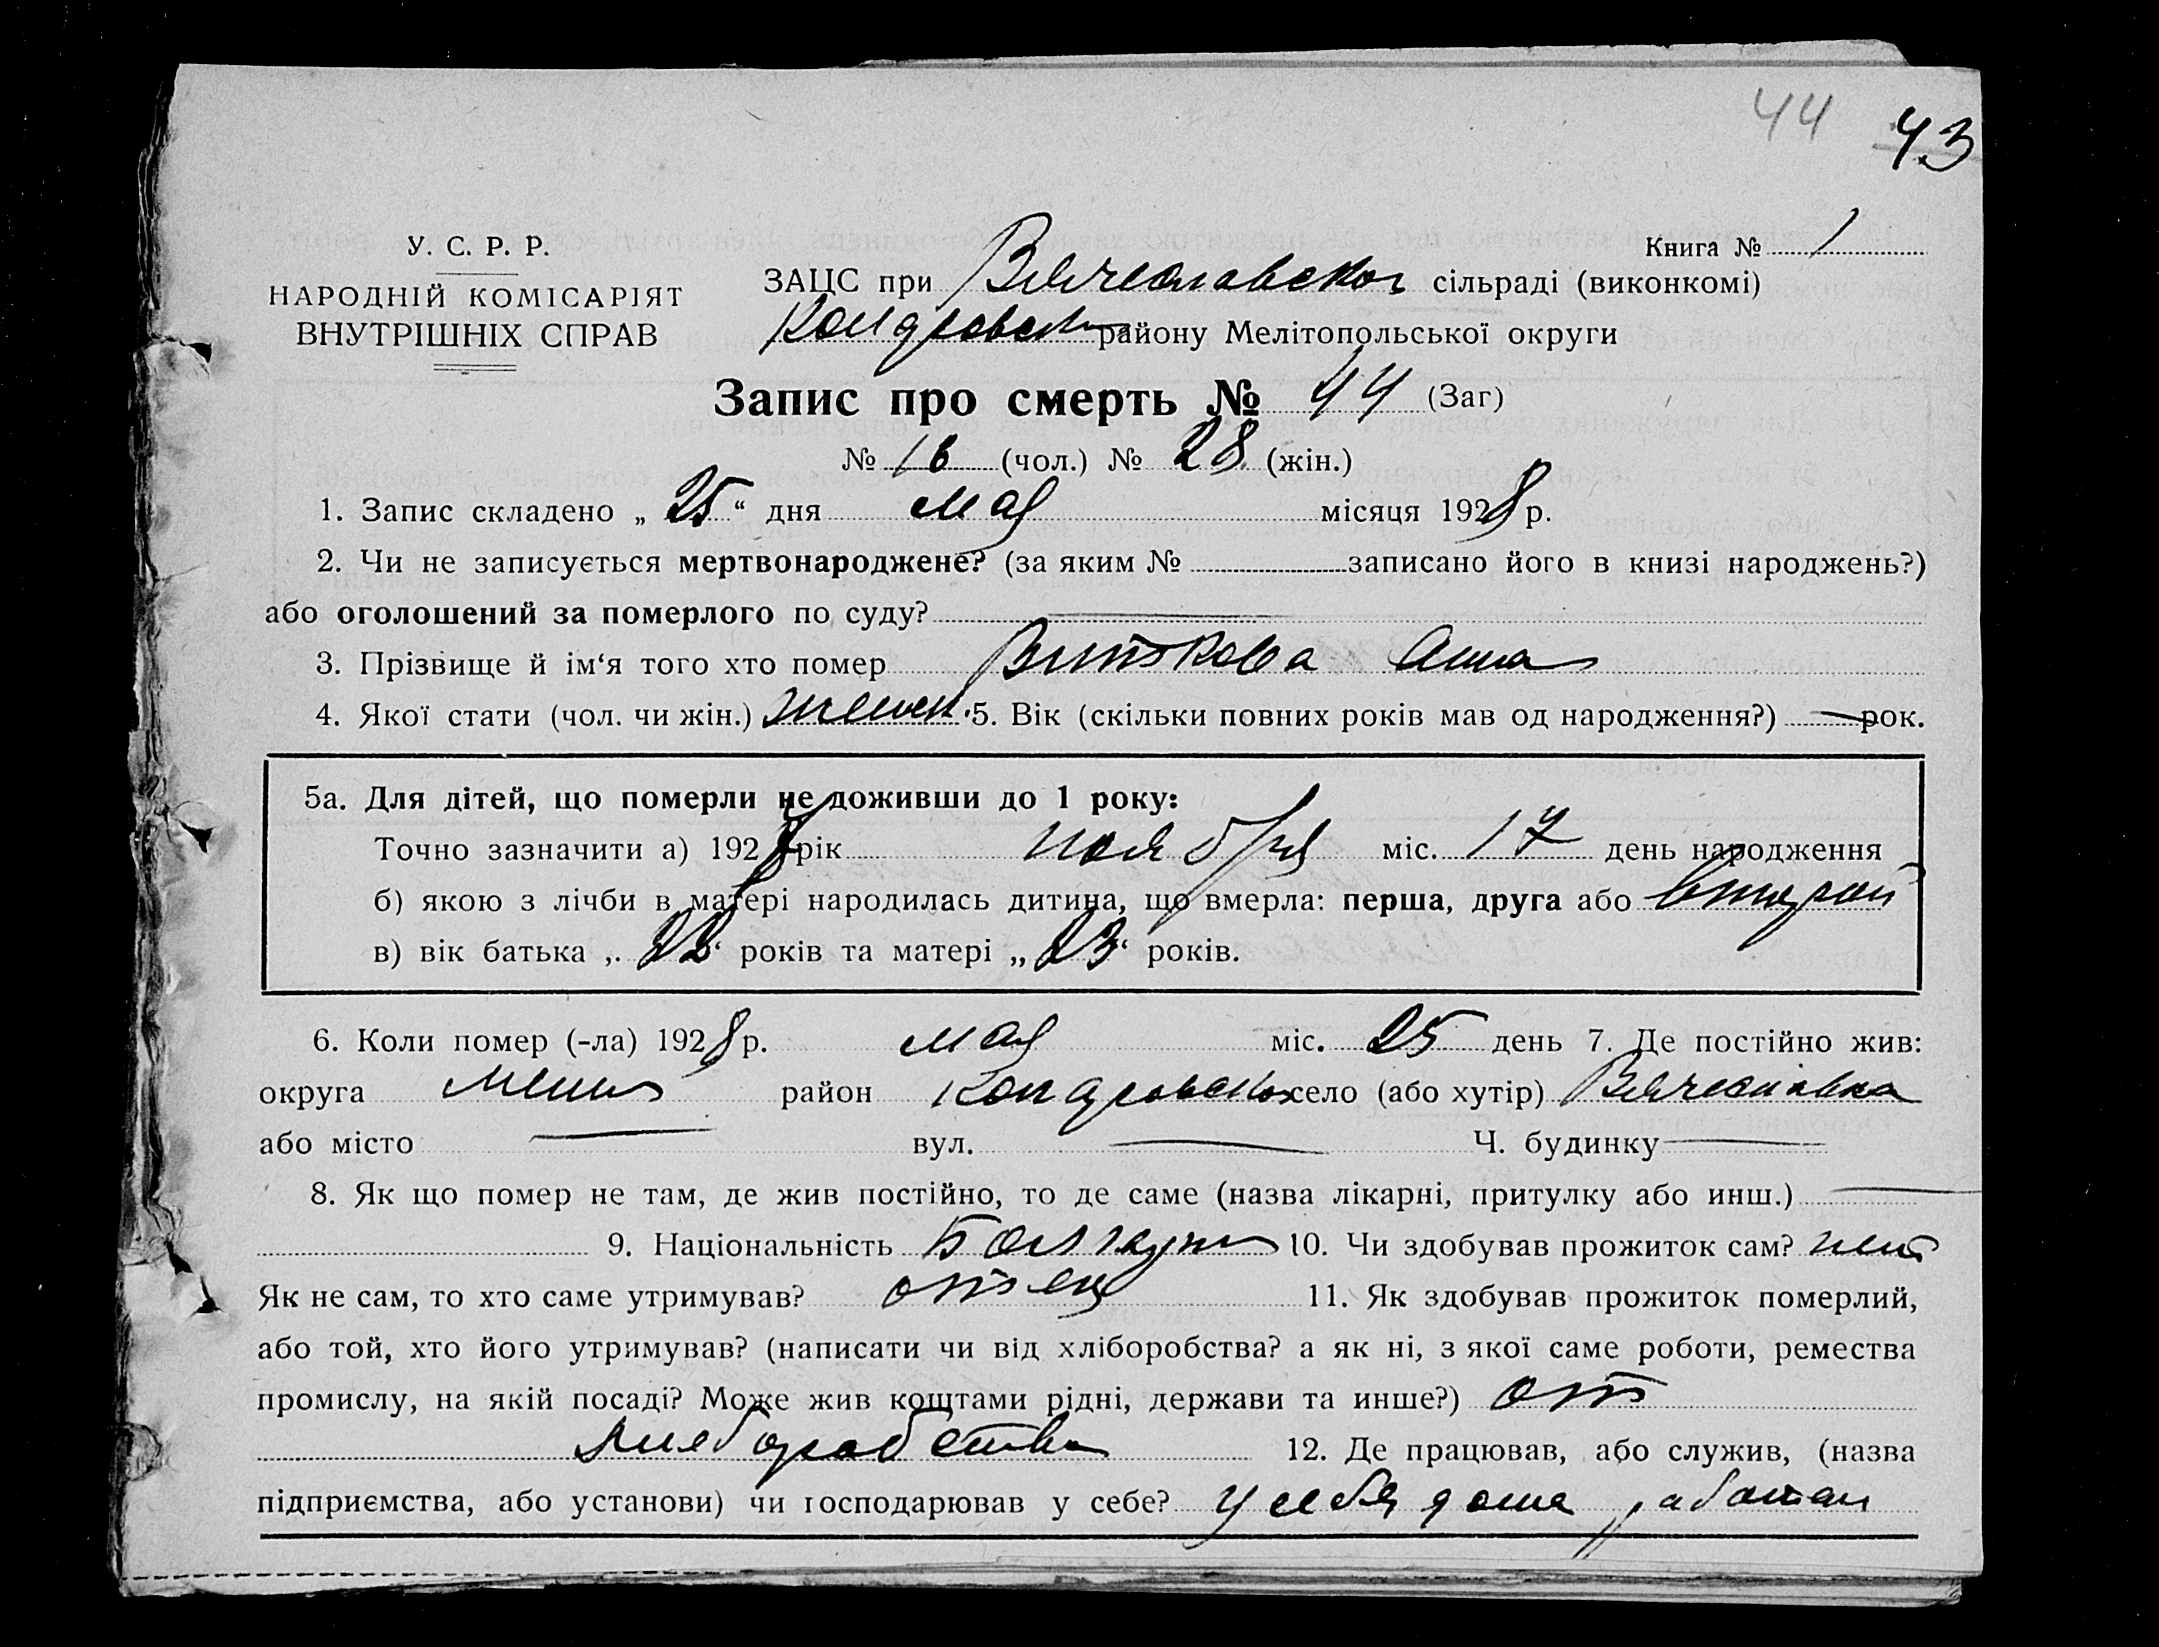 44 43
У. С. Р. Р.
Книга № 1
НАРОДНІЙ КОМІСАРІЯТ
ВНУТРІШНІХ СПРАВ
ЗАЦС при Вячеславской сільраді (виконкомі)
району Мелітопольської округи
Запис про смерть № 44 (Заг)
№ 16 (чол.) № 28 (жін.)
1. Запис складено „ 25 “ дня мая місяця 1928 р.
2. Чи не записується мертвонароджене? (за яким № записано його в книзі народжень?)
або оголошений за померлого по суду?
3. Прізвище й ім‘я того хто помер Виткова Анна
4. Якої стати (чол. чи жін.) женск. 5. Вік (скільки повних років мав од народження?) — рок.
5а. Для дітей, що померли не доживши до 1 року:
Точно зазначити а) 192 рік ноября міс. 17 день народження
б) якою з лічби в матері народилась дитина, що вмерла: перша, друга або второй
в) вік батька „ 22 “ років та матері „ 23 “ років.
6. Коли помер (-ла) 1928 р. мая міс. 25 день 7. Де постійно жив:
округа район Кондровской село (або хутір) Вячеславка
або місто — вул. — Ч. будинку —
8. Як що помер не там, де жив постійно, то де саме (назва лікарні, притулку або инш.) —
9. Національність 10. Чи здобував прожиток сам? нет
Як не сам, то хто саме утримував? отец 11. Як здобував прожиток померлий,
або той, хто його утримував? (написати чи від хліборобства? а як ні, з якої саме роботи, ремества
промислу, на якій посаді? Може жив коштами рідні, держави та инше?) от
12. Де працював, або служив, (назва
підприємства, або установи) чи господарював у себе? у себя дома работал